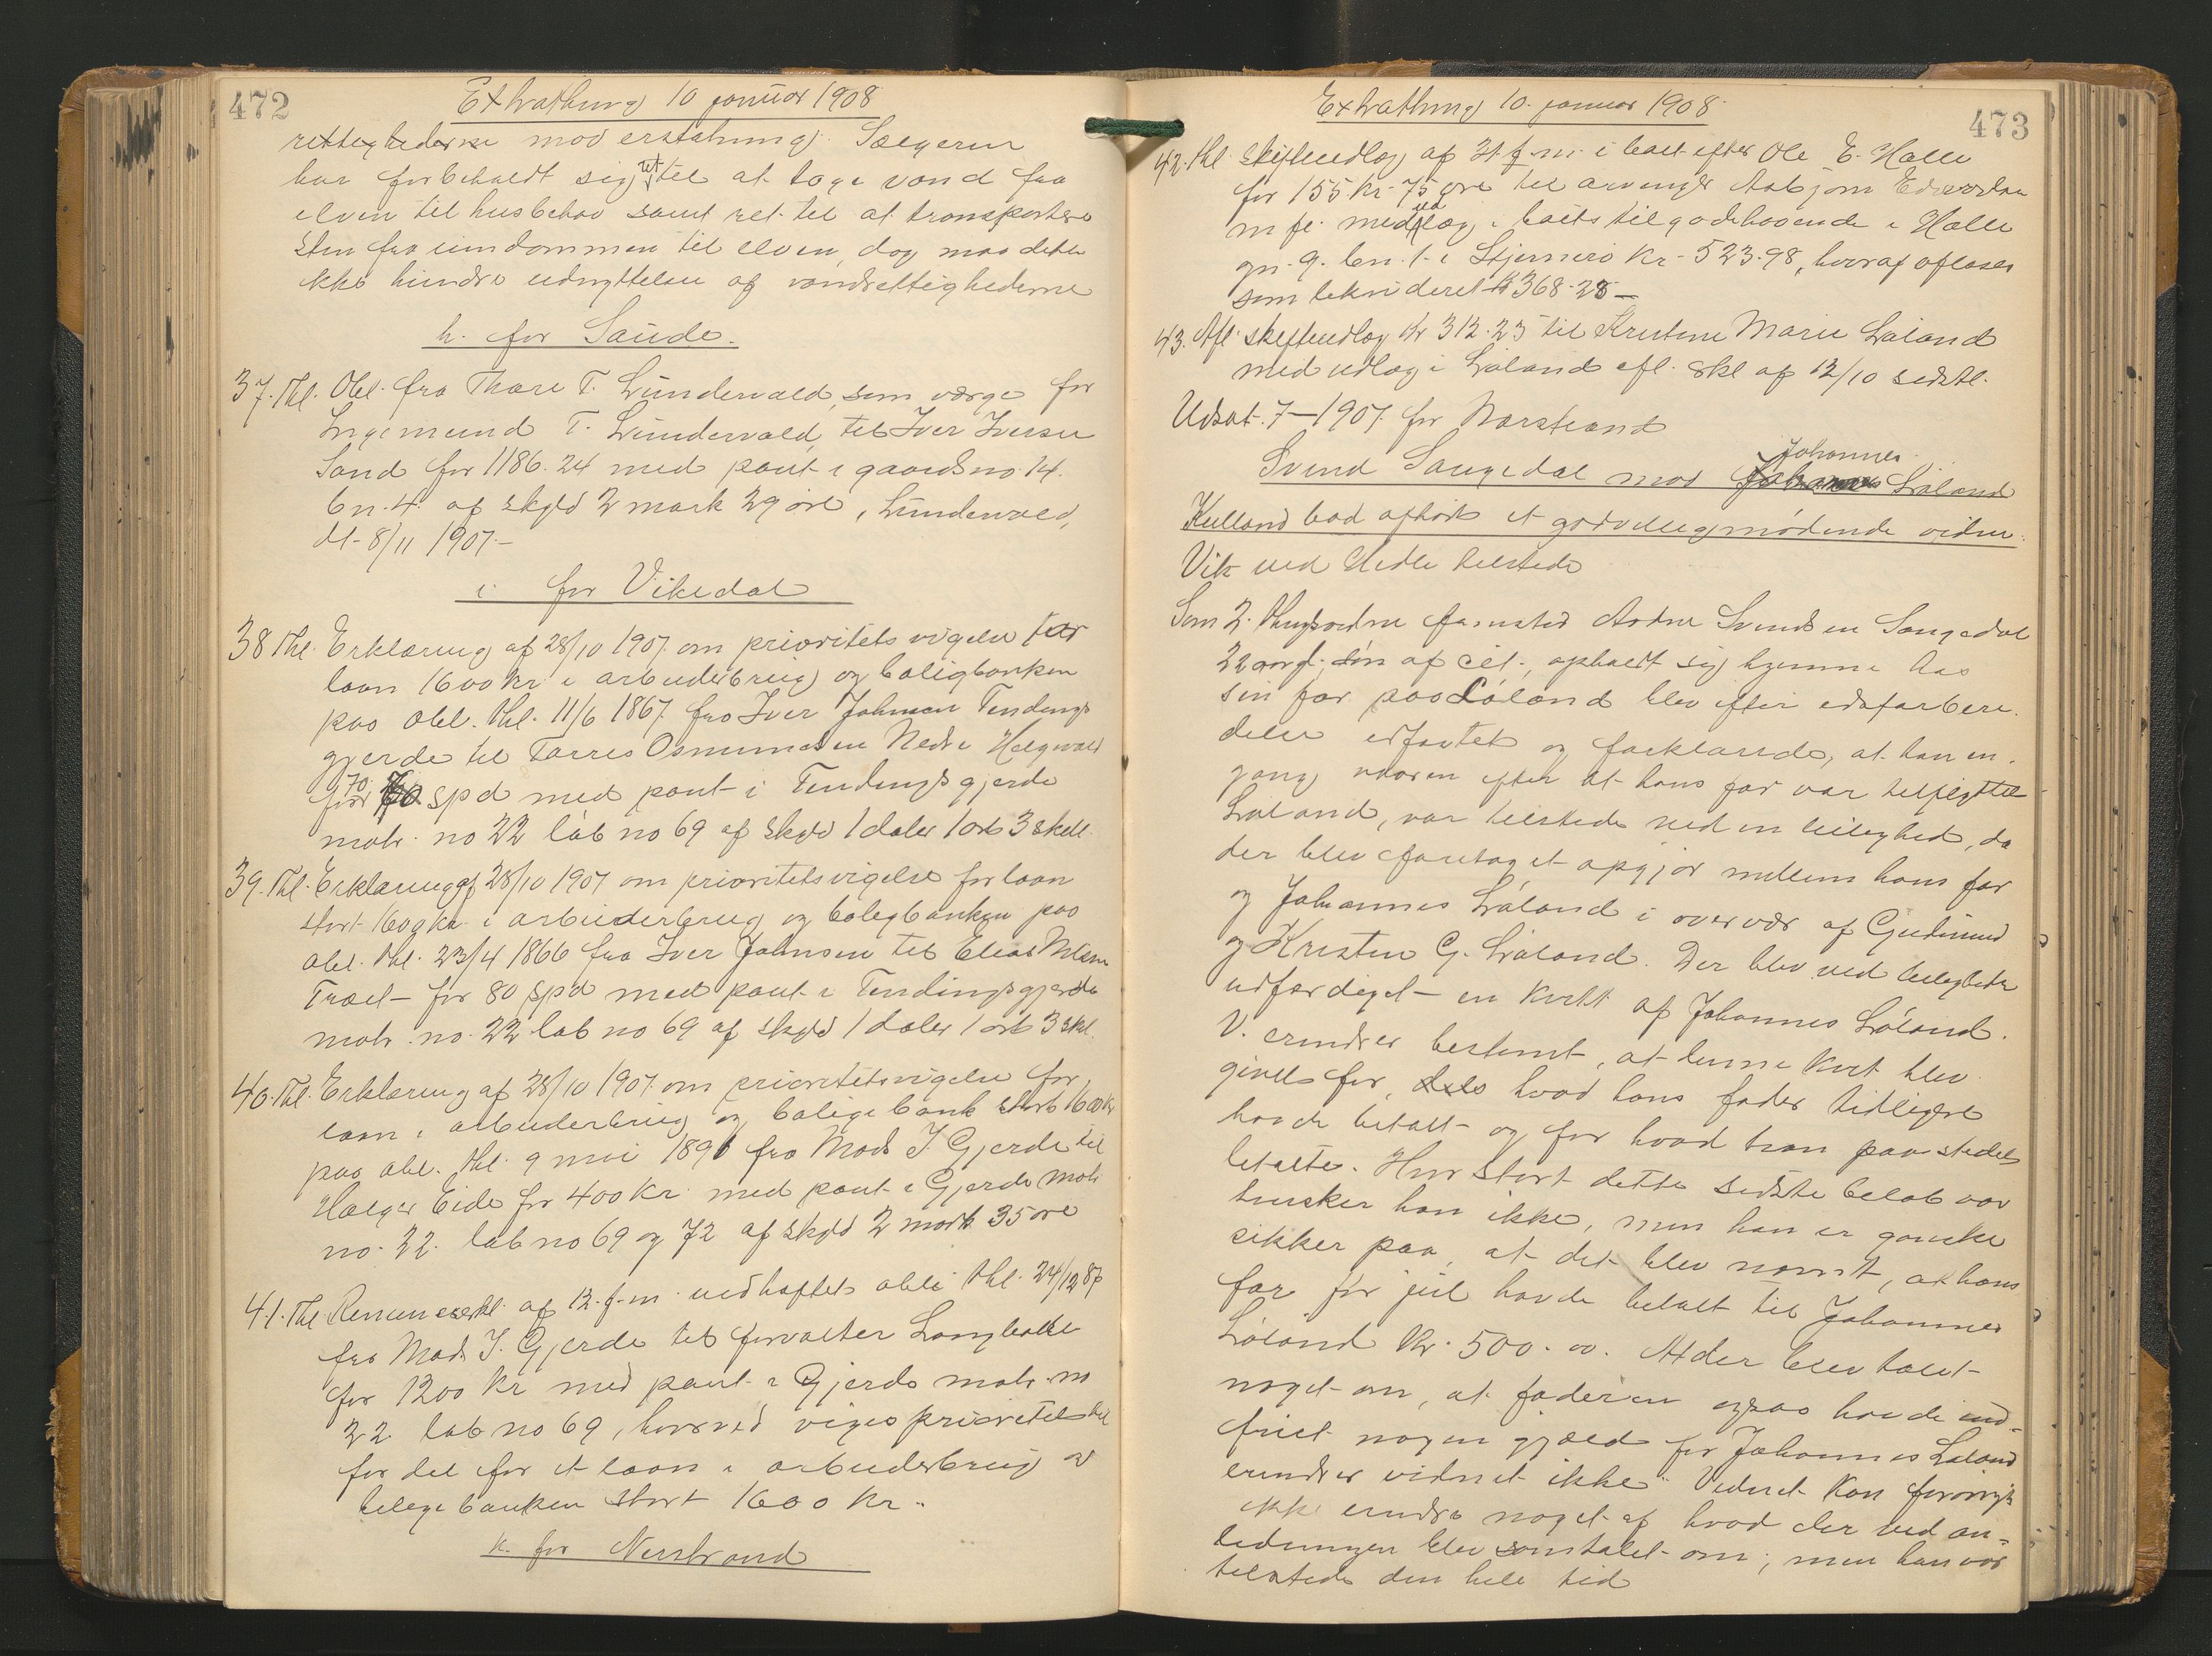 472
Extrathing 10 januar 1908
rettighederne mod erstatning. Sælgeren
har forbeholdt sig ret til at tage vand fra
elven til husbehov samt ret til at transportere
sten fra eiendommen til elven, dog maa dette
ikke hindre udnyttelsen af vandrettighederne
h. for Saude.
37. Thl. Obl. fra Thore T. Lundervald, som værge for
Ingemund T. Lundervald til Iver Iversen
Sand for 1186.24 med pant i gaards no 14.
bn. 4 af skyld 2 mark 29 øre, Lundervold,
dt. 8/11 1907.-
i for Vikedal
38 Thl. Erklæring af 28/10 1907 om prioritets vigelse for
laan 1600 kr i arbeiderbrug og boligbanken
paa obl. thl. 11/6 1867 fra Iver Johnsen Tendings
gjerde til Torres Osmundsen Nedre
for 70 spd med pant i Tendingsgjerde
matr. no 22 løb no 69 af skyld 1 daler 1 ort 3 skill.
39. Thl. Erklæring af 28/10 1907 om prioritetsvigelse for laan
stort 1600 kr i arbeiderbrug og boligbanken paa
obl. thl. 23/4 1866 fra Iver Johnsen til Elias Nilsen
for 80 spd med pant i Tendingsgjerde
matr. no. 22 løb no 69 af skyld 1 daler 1 ort 3 skl.
40. Thl. Erklæring af 28/10 1907 om prioritetsvigelse for
laan i arbeiderbrug og boligbank stort 1600 kr
paa obl. thl. 9 mai 1891 fra Mads J. Gjerde til
Holger Eide for 400 kr med pant i Gjerde matr
no. 22. løb no 69 og 72 af skyld 2 mark 35 øre
41. Thl. af 12. f. m. vedhæftet obli thl. 24/12 87
fra Mads J. Gjerde til forvalter Langbakke
for 1200 kr med pant i Gjerde matr. no
22 løb no 69, hvorved viges prioritet til
fordel for et laan i arbeiderbrug og
boligbanken stort 1600 kr.
k. for Nerstrand
473
Extrathing 10. januar 1908.
42. thl. skifteudlæg af 31 f. m. i boet efter Ole E. Halle
for 155 kr. 75 øre til arvinger Asbjørn
m fl. med udlæg i boets tilgodehavende i Halle
gn. 9. bn. 1. i Stjernerø kr. 523.98, hvoraf aflæses
som kr 368.28-
43. Afl. skifteudlæg kr 312.23 til Kristine Marie Løland
med udlæg i Løland efl. skl af 12/10 sidstl.
Udsat. 7-1907 for Narstrand
Svend Sangedal mod Johannes Løland
Kulland bad afhørt et godvillig mødende vidne.
Vik ved Hedle tilstede
Som 2. thingsvidne fremsted Andre Svendsen Sangedal
22 aar gl., søn af cit., opholdt sig hjemme hos
sin far paa Løland blev efter edsforbere-
delse edfæstet og forklarede, at han en-
gang vaaren efter at hans far var tilflyttet
Løland, var tilstede ved en leilighed, da
der blev foretaget opgjør mellem hans far
og Johannes Løland i overvær af Gudmund
og Kristen G. Løland. Der blev ved leiligheden
udfærdiget en kvitt af Johannes Løland.
V. erindrer bestemt, at denne kvit blev
givet for, dels hvad hans fader tidligere
havde betalt og for hvad han paa stedet
betalte. Hvor stort dette sidste beløb var
husker han ikke, men han er ganske
sikker paa, at det blev nævnt, at hans
far før jul havde betalt til Johannes
Løland kr. 500.00. At der blev talet
noget om, at faderen ogsaa havde ind-
friet nogen gjæld for Johannes Løland
erindrer vidnet ikke. Vidnet kan forøvrigt
ikke erindre noget af hvad der ved an-
ledningen blev samtalet om; men han var
tilstede den hele tid